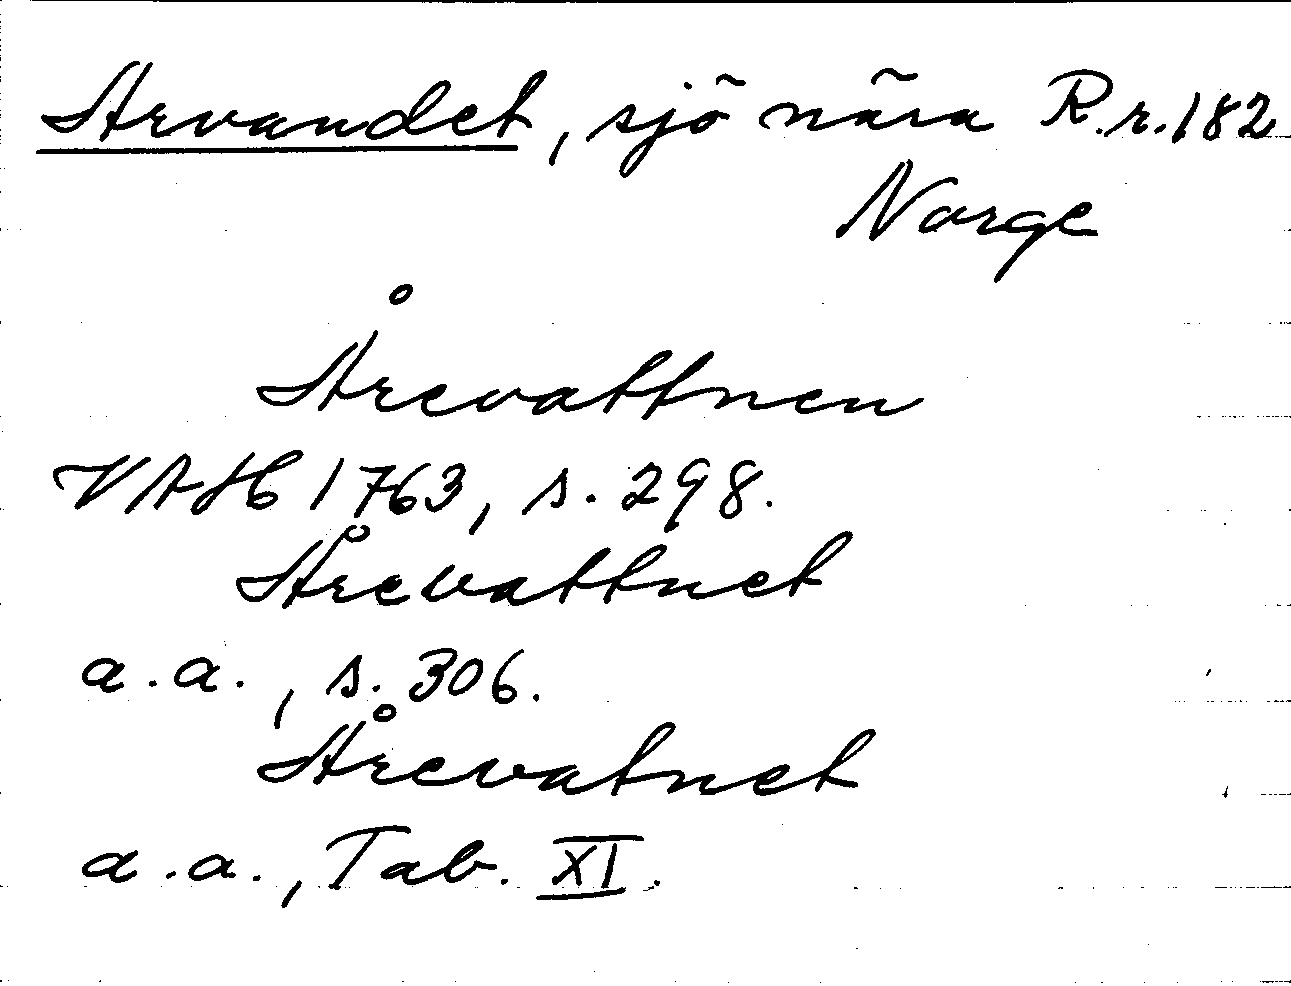 Arvandet, sjö nära R.r.182
Norge
Årevattnen
VAH 1763, s. 298.
Årevattnet
a.a., s. 306.
Årevatnet
a.a., Tab. XI.